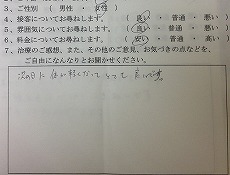 3、ご性別 ( 男性 ・ 女性 )
4、接客についてお尋ねします。 ( 良い ・ 普通 ・ 悪い )
5、雰囲気についてお尋ねします。 ( 良い ・ 普通 ・ 悪い )
6、料金についてお尋ねします。 ( 安い ・ 普通 ・ 高い )
7、治療のご感想、また、その他のご意見、お気づきの点などを、
ご自由になんなりとお聞かせください。
次の日に 体が軽くなって とっても 良いです。